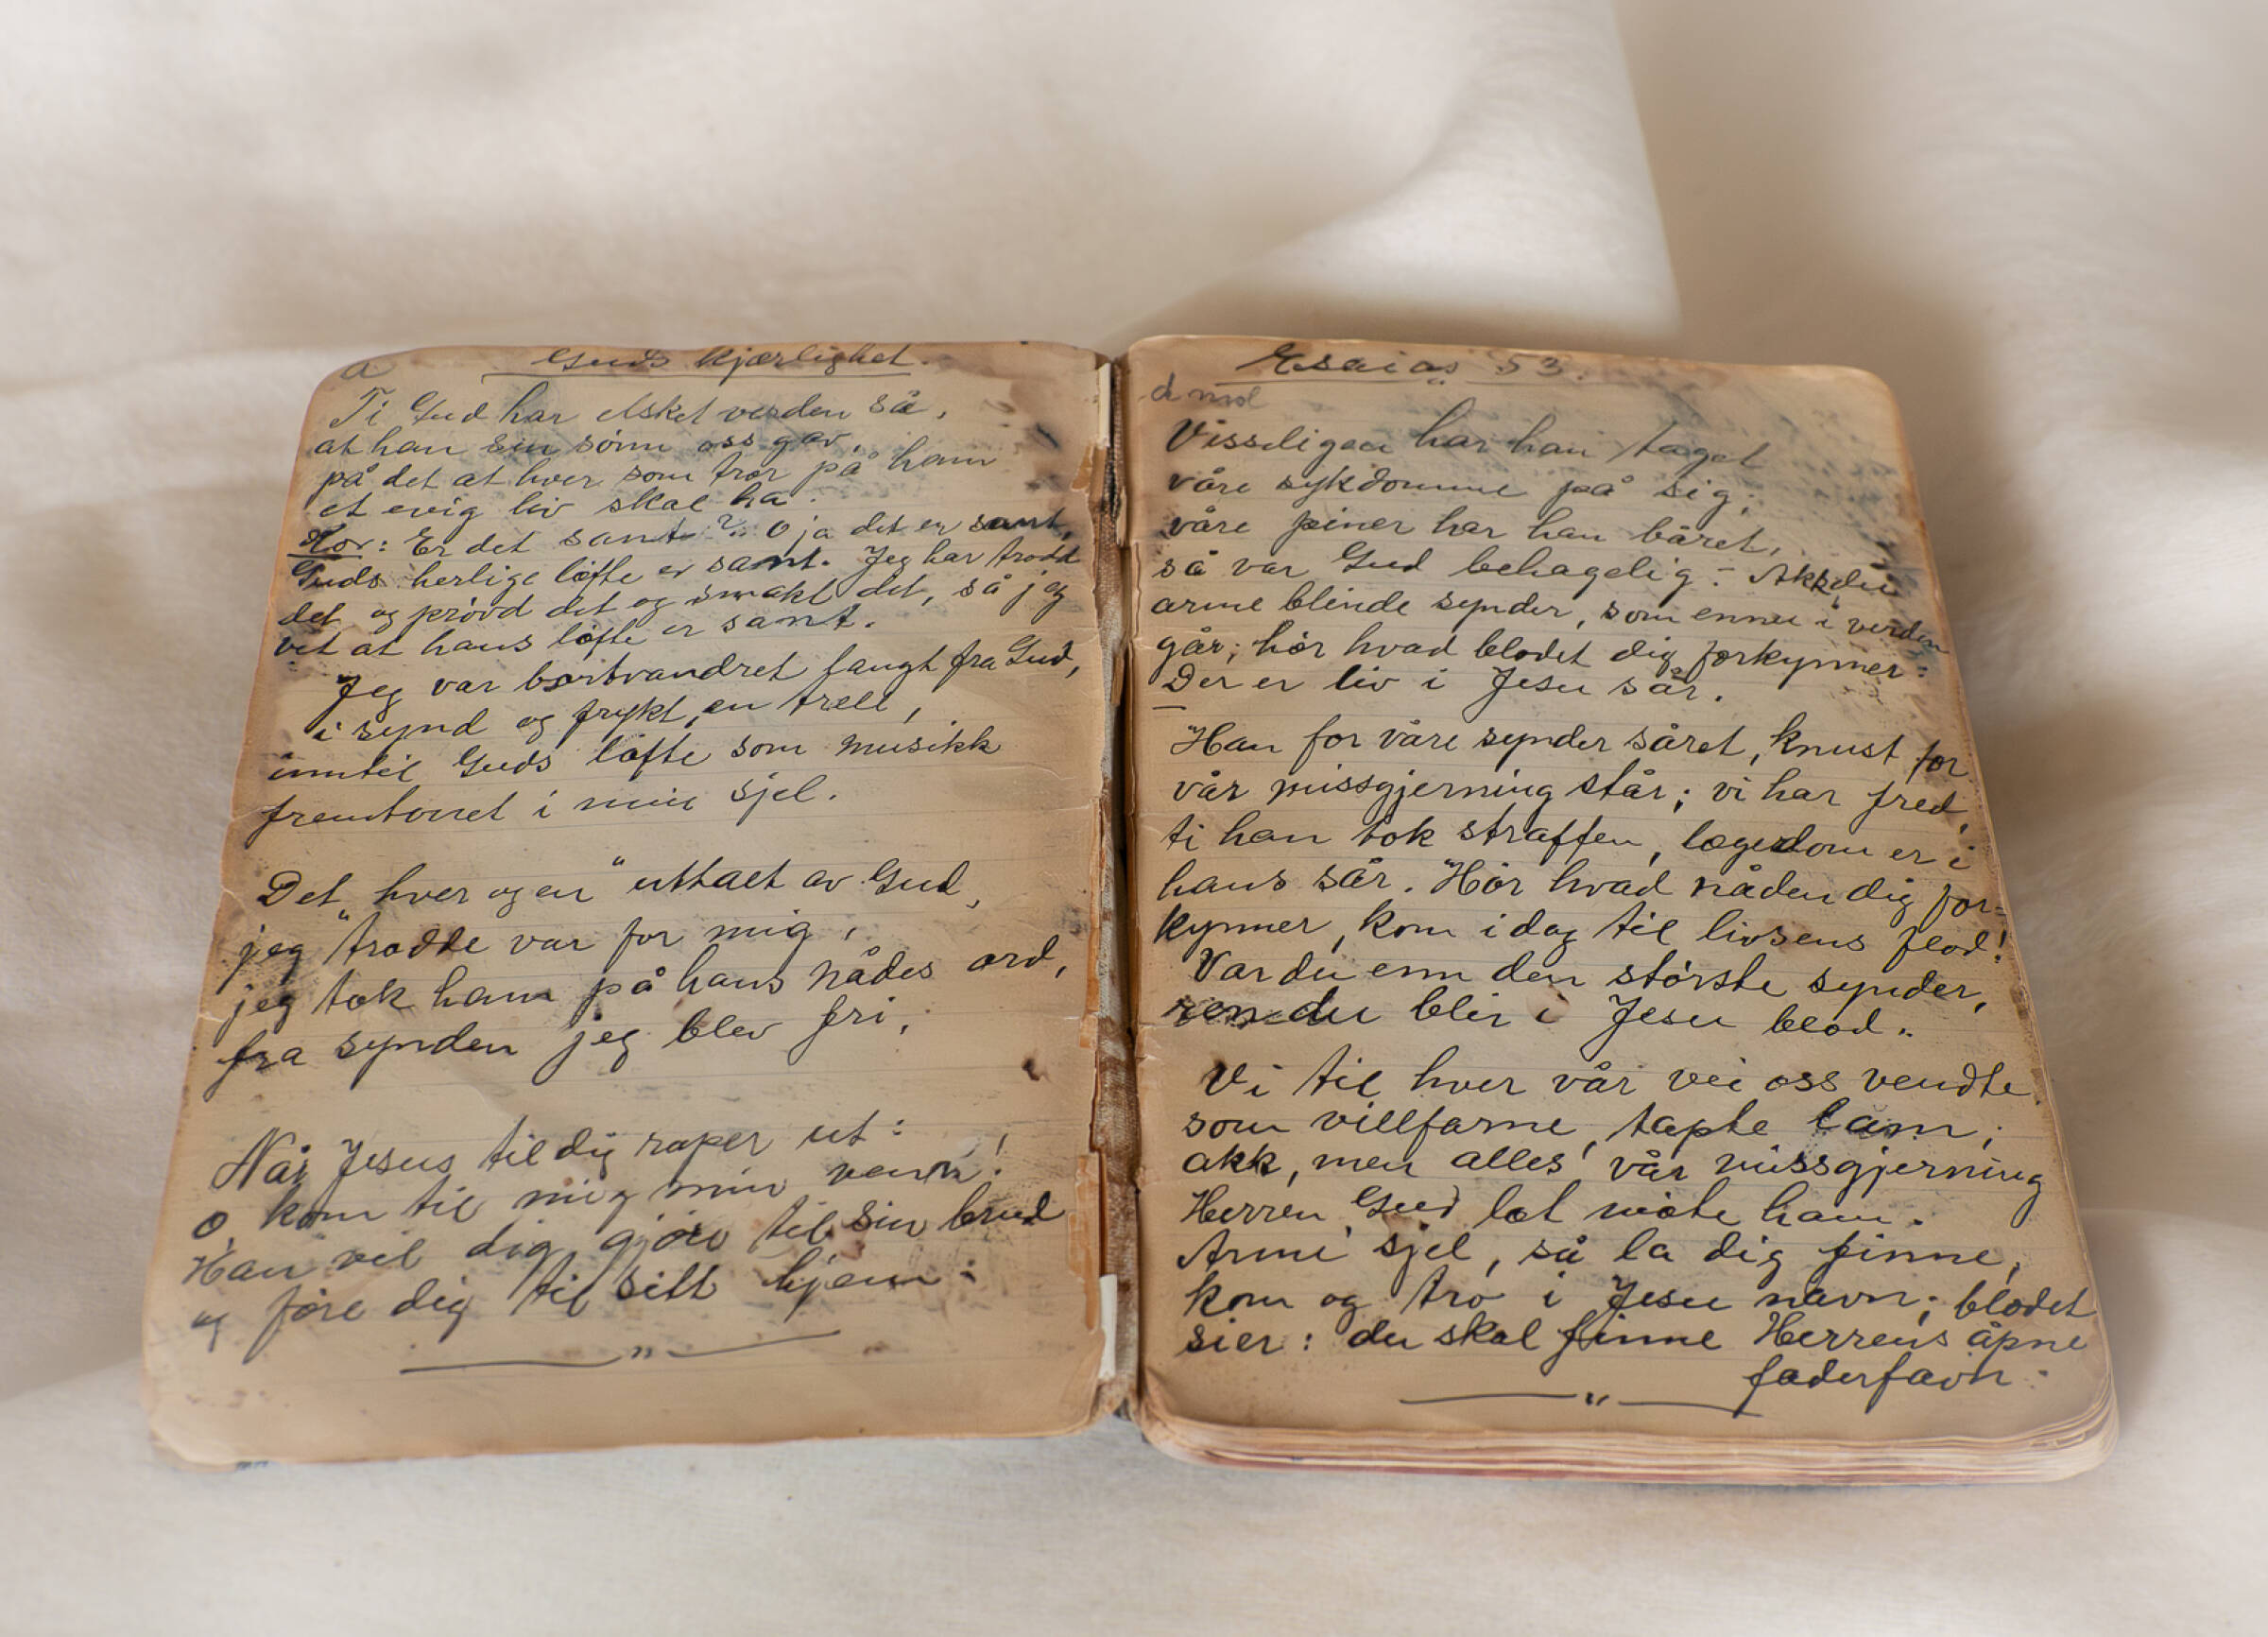 a
Guds kjærlighet.
Ti Gud har elsket verden så,
at han sin sönn oss gav,
på det at hver som tror på ham
et evig liv skal ha.
Kor: Er det sant? O ja det er sant,
Guds herlige löfte er sant. Jeg har trodd
det og prövd det og smakt det, så jeg
vet at hans löfte er sant.
Jeg var bortvandret langt fra Gud,
i synd og frykt, en trell,
inntil Guds löfte som musikk
fremtonet i min sjel.
Det "hver og en" uttalt av Gud,
jeg trodde var for mig,
jeg tok ham på hans nådes ord,
fra synden jeg blev fri,
Når Jesus til dig roper ut:
o, kom til mig min venn!
Han vil dig gjöre til sin brud
og före dig til sitt hjem.
"
Esaias 53.
d mol
Visseligen har han taget
våre sykdomme på sig,
våre piner har han båret,
så var Gud behagelig. Akk, du
arme blinde synder, som ennu i verden
går; hör hvad blodet dig forkynner:
Der er liv i Jesu sår.
Han for våre synder såret, knust for
vår missgjerning står; vi har fred,
ti han tok straffen, lægedom er i
hans sår. Hör hvad nåden dig for=
kynner, kom idag til livsens flod!
Var du enn den störste synder,
ren du blir i Jesu blod.
Vi til hver vår vei oss vendte
som villfarne, tapte lam;
akk, men alles vår missgjerning
Herren Gud lot möte ham.
Arme sjel, så la dig finne,
kom og tro i Jesu navn; blodet
sier: du skal finne Herrens åpne
faderfavn.
"